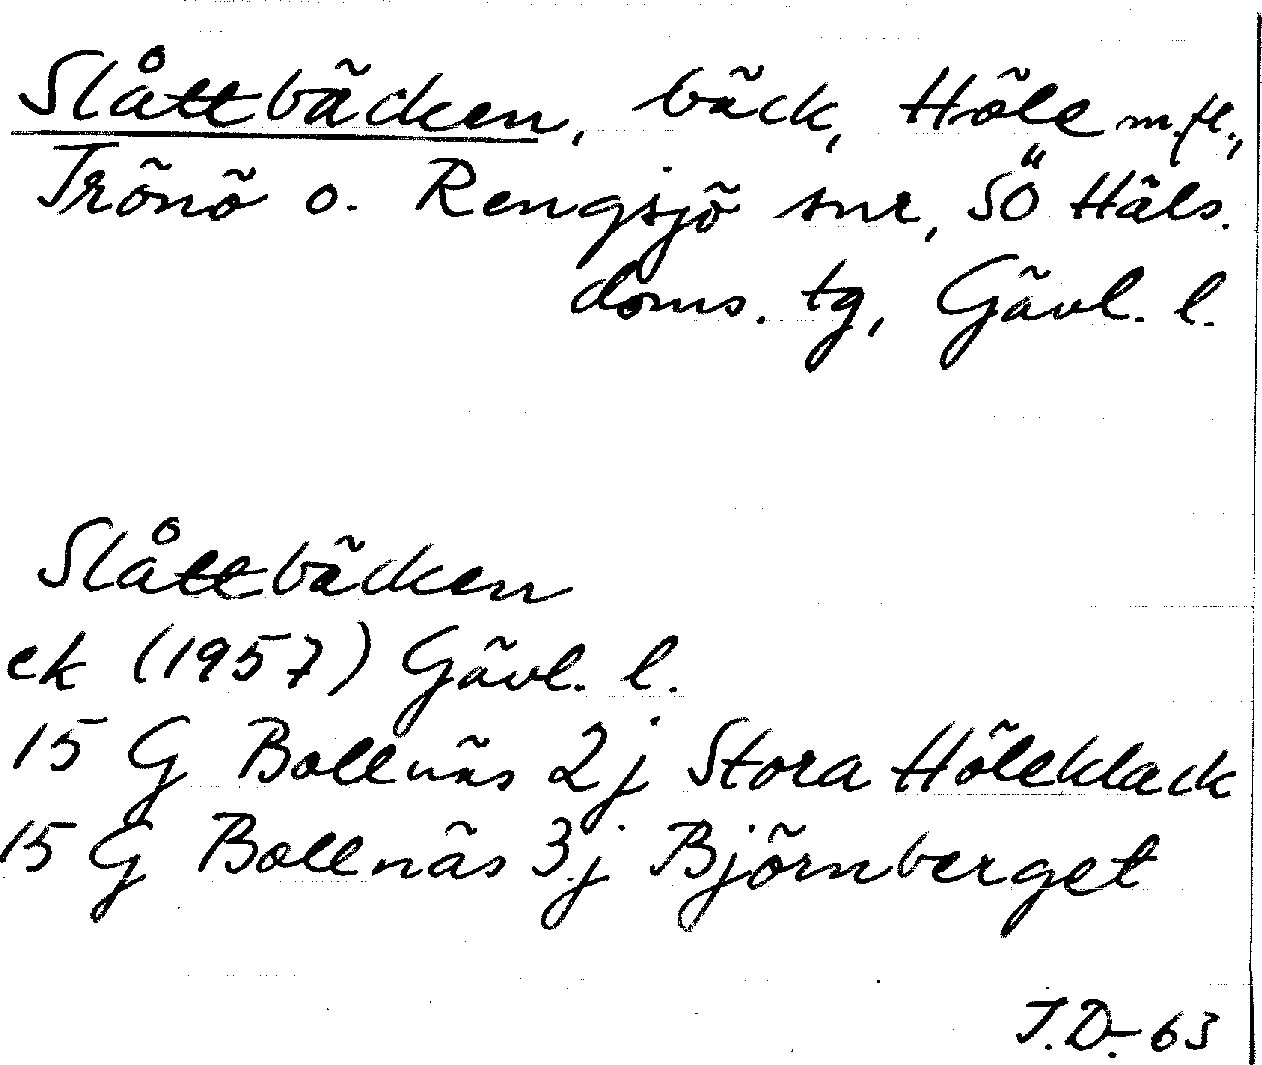 Slåttbäcken, bäck, Höle m.fl.,
Trönö o. Rengsjö snr, SÖ Häls.
doms. tg, Gävl. l.
Slåttbäcken
ek (1957) Gävl. l.
15 G Bollnäs 2j Stora Höleklack
15 G Bollnäs 3j Björnberget
I.D.-63